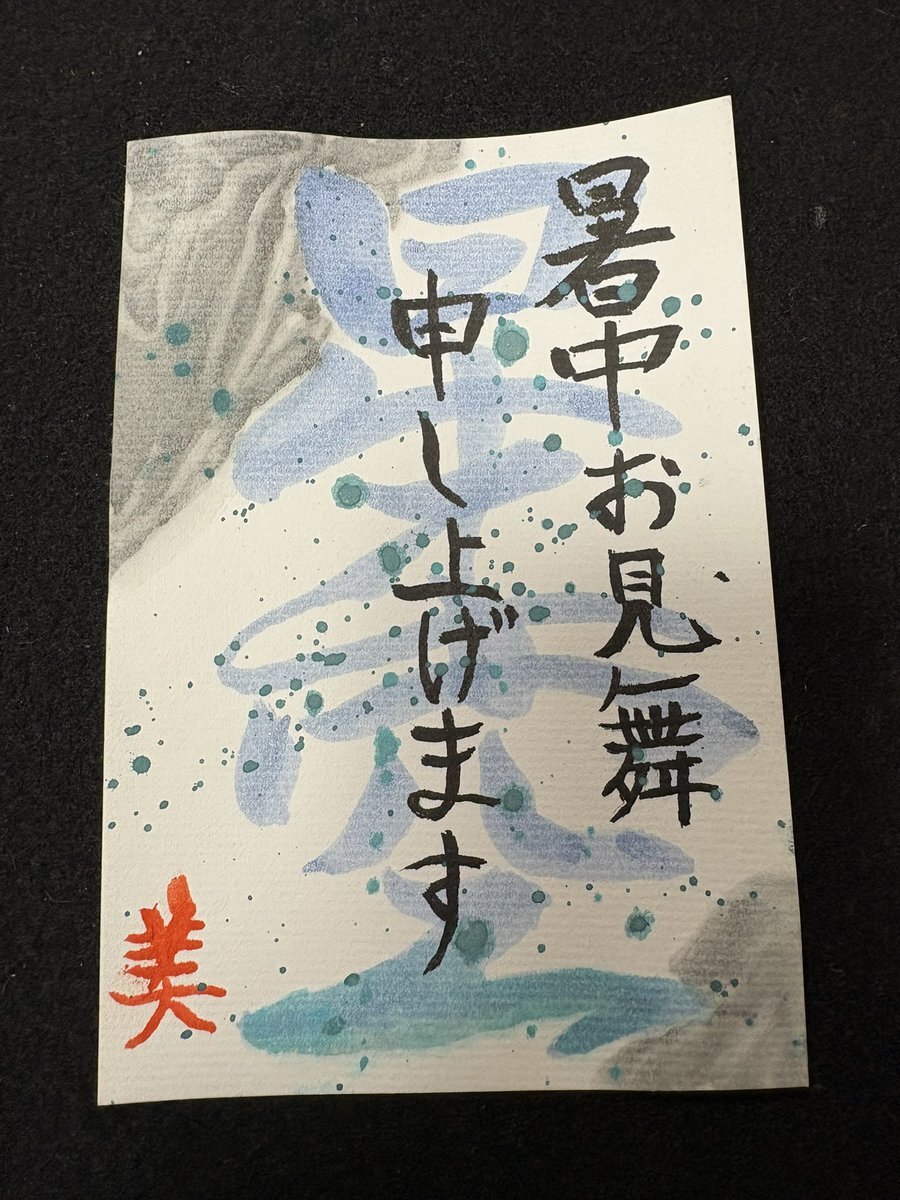 暑中お見舞
申し上げます
星空
美